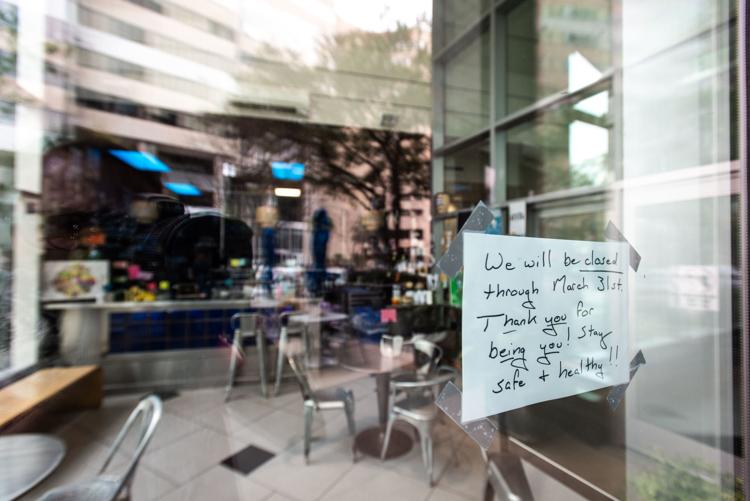 We will be closed
through March 31st.
Thank you for
being you! Stay
safe + healthy!!